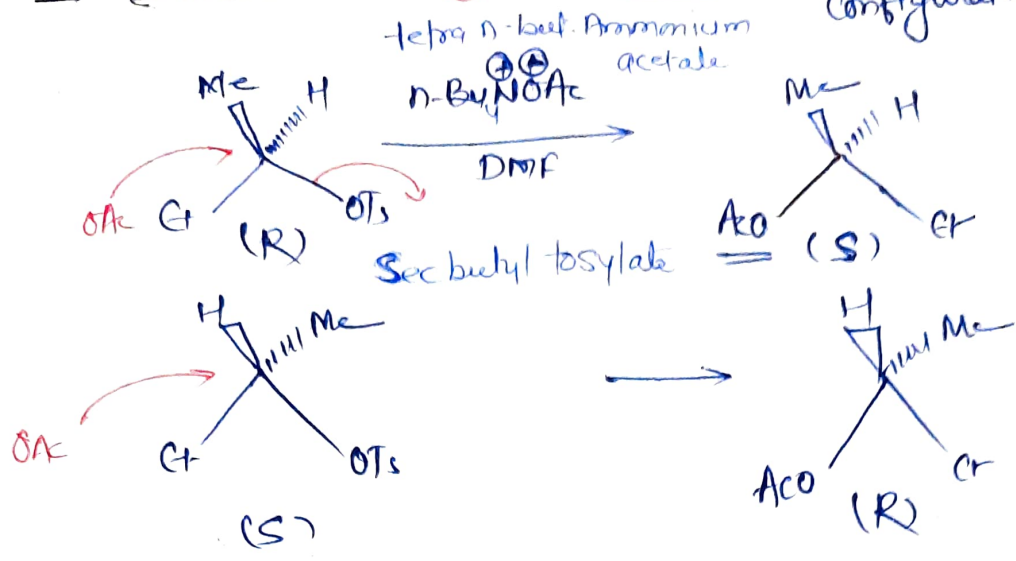 configura
tetra n-but. Ammonium
acetate
n-Bu₄N⊕ ⊖OAc
DMF
Me H
Et OTs
ŌAc
(R)
Me H
AcO Et
(S)
Sec butyl tosylate
H Me
ŌAc
Et OTs
(S)
H Me
AcO Et
(R)